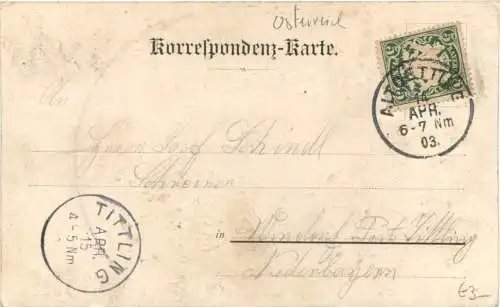 Österreich
Korrespondenz-Karte.
ALTOETTING
14
APR.
6-7 Nm
03.
An
Herrn Josef Schindl
Schreiner
in Post Tittling
Niederbayern
TITTLING
15
APR.
4-5 Nm